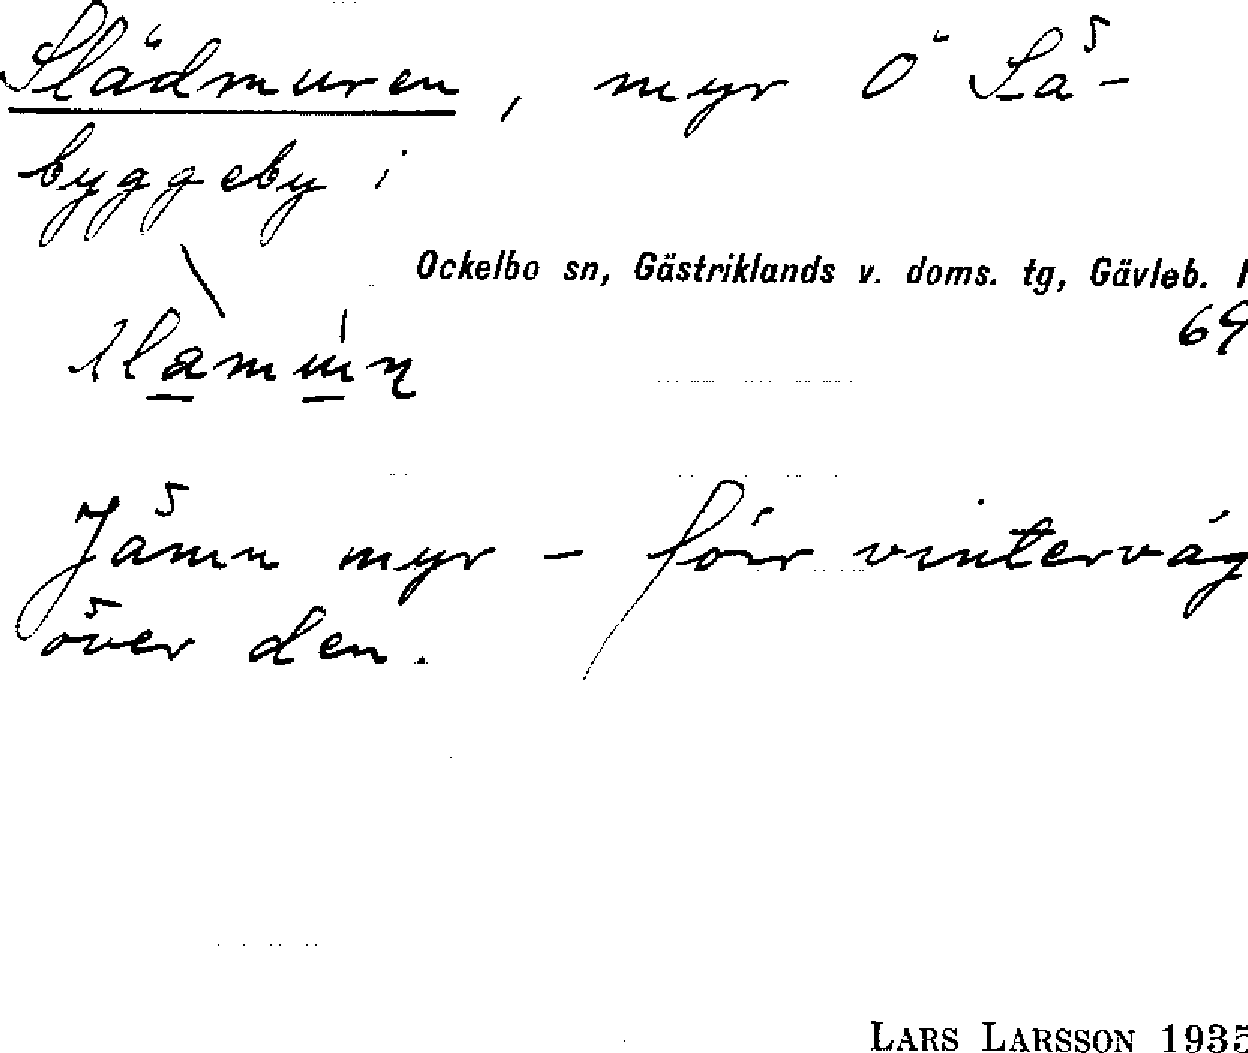 Slädmuren, myr Ö Sä-
byggeby i
Ockelbo sn, Gästriklands v. doms. tg, Gävleb.
69
Jämn myr - förr vinterväg
över den.
LARS LARSSON 1935